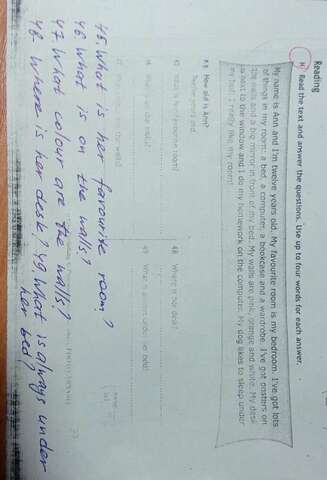 Reading
H Read the text and answer the questions. Use up to four words for each answer.
My name is Ann and I'm twelve years old. My favourite room is my bedroom. I've got lots
of things in my room: a bed, a computer, a bookcase and a wardrobe. I've got posters on
the walls and a big mirror in front of my bed. My walls are pink, orange and white. My desk
is next to the window and I do my homework on the computer. My dog likes to sleep under
my bed. I really like my room!
How old is Ann?
Twelve years old.
45 What is her favourite room?
46 What's on the walls?
48 Where is her desk?
49 What is always under her bed?
45. What is her favourite room?
46. What is on the walls?
47. What colour are the walls?
48. Where is her desk? 49. What is always under
her bed?